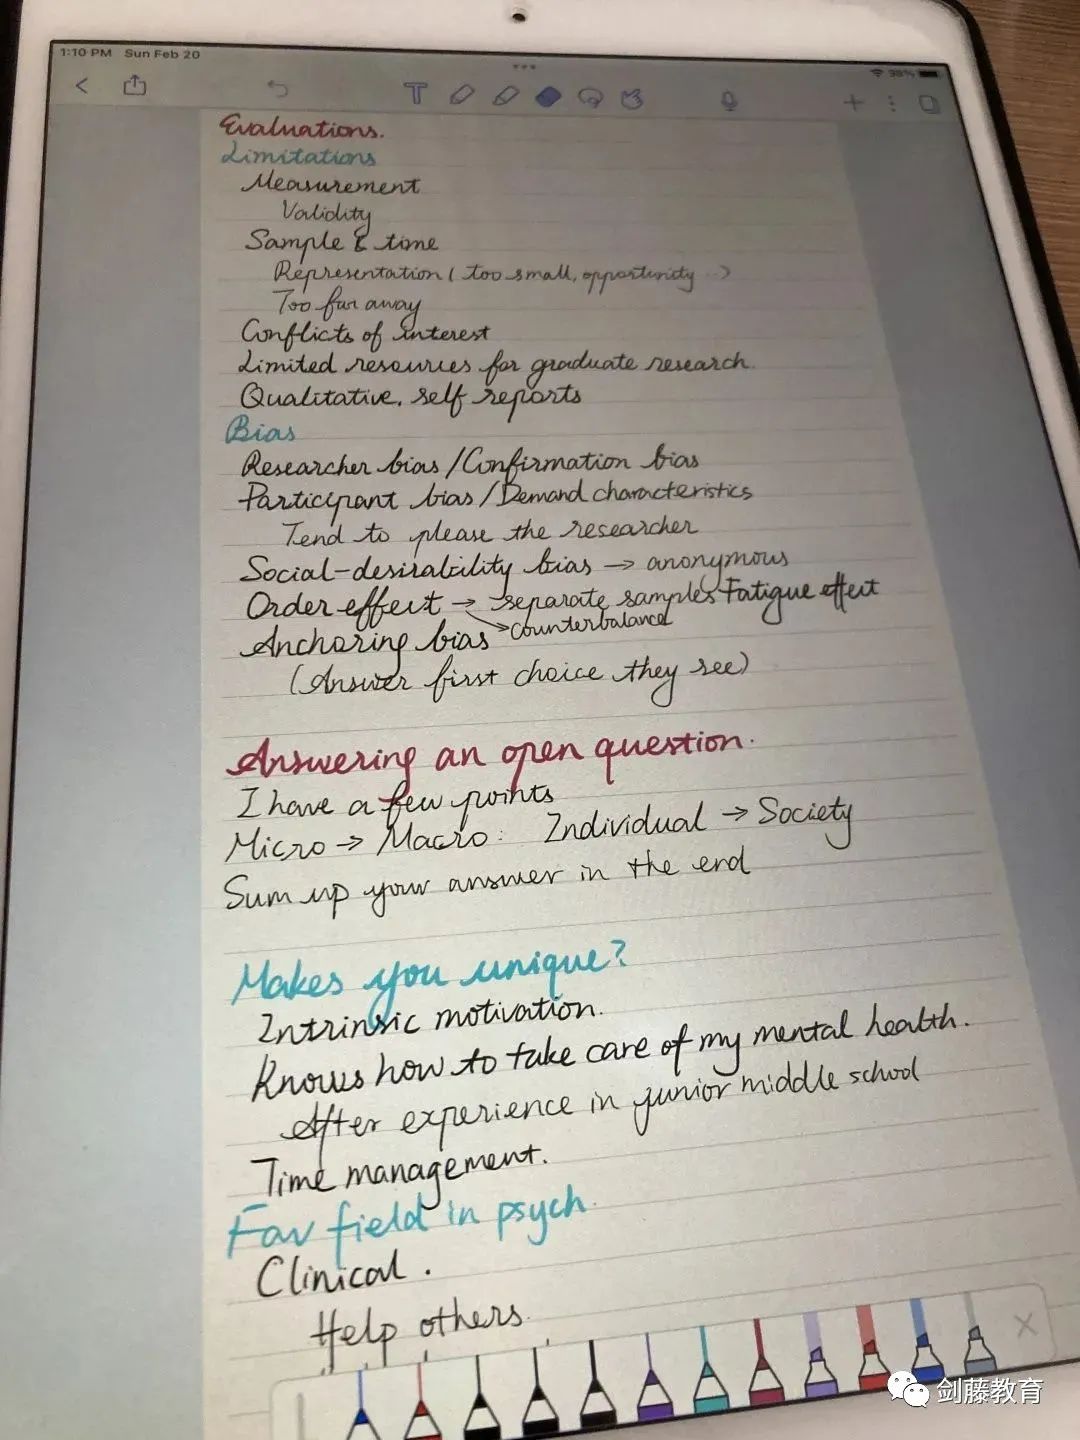 1:10 PM Sun Feb 20
38%
Evaluations.
Limitations
Measurement
Validity
Sample & time
Representation ( too small, opportunity ..)
Too far away
Conflicts of interest
Limited resources for graduate research.
Qualitative, self reports
Bias
Researcher bias / Confirmation bias
Participant bias / Demand characteristics
Tend to please the researcher
Social-desirability bias → anonymous
Order effect → separate samples Fatigue effect
→ counterbalance
Anchoring bias
(Answer first choice they see)
Answering an open question.
I have a few points
Micro → Macro: Individual → Society
Sum up your answer in the end
Makes you unique?
Intrinsic motivation.
Knows how to take care of my mental health.
After experience in junior middle school
Time management.
Fav field in psych.
Clinical.
Help others
剑藤教育